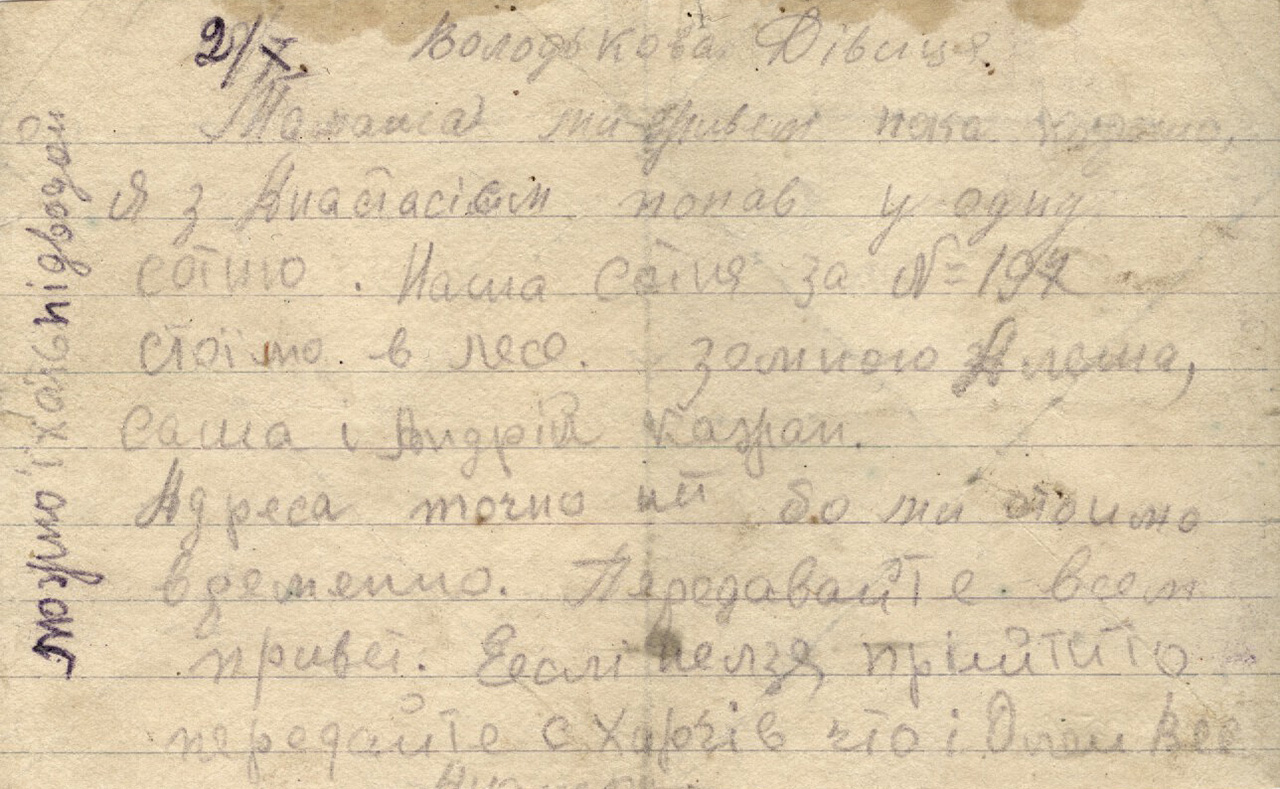 2/X. Володькова Дівиця.
Мамаша ми живем пока
Я з Анастасієм попав у одну
сотню. Наша сотня за №=197
стоїмо в лесе. зомною Алеша,
Саша і Андрій
Адреса точно бо ми стоимо
временно. Передавайте всем
привет. Если нелзя прийтито
передайте с Харчів что і
можно їхать підводой